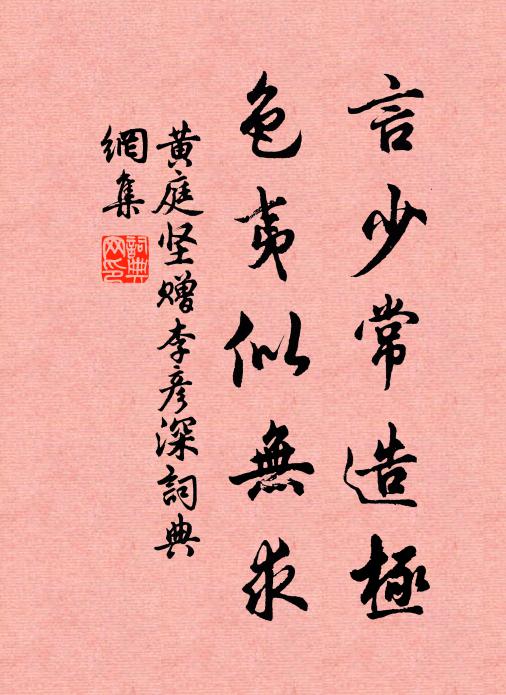 言少常造極
色夷似無求
黄庭坚赠李彦深詞典
網集
詞典
网印